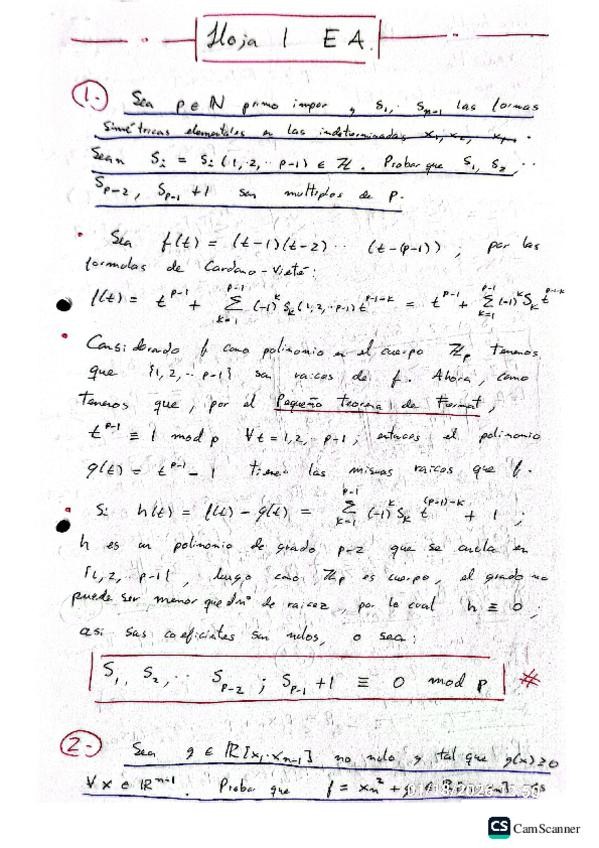 Hoja 1 E A.
1.- Sea p ∈ ℕ primo impar y s₁,·· sₙ₋₁ las formas
simétricas elementales en las indeterminadas x₁, x₂, xₙ.
Sean Sᵢ = sᵢ(1,·2,·· p-1) ∈ ℤ. Probar que S₁, S₂, ··
Sₚ₋₂, Sₚ₋₁ + 1 son multiplos de p.
• Sea f(t) = (t-1)(t-2)·· (t-(p-1)); por las
formulas de Cardano-Vieté:
f(t) = t^{p-1} + ∑_{k=1}^{p-1} (-1)^k s_k(1,2,··p-1) t^{p-1-k} = t^{p-1} + ∑_{k=1}^{p-1} (-1)^k S_k t^{p-1-k}
• Considerando f como polinomio en el cuerpo ℤₚ tenemos
que {1,2,·· p-1} son raices de f. Ahora, como
tenemos que, por el Pequeño teorema de Fermat,
t^{p-1} ≡ 1 mod p ∀t = 1,2,·· p-1, entonces el polinomio
g(t) = t^{p-1} - 1 tiene las mismas raices que f.
• Si h(t) = f(t) - g(t) = ∑_{k=1}^{p-1} (-1)^k S_k t^{(p-1)-k} + 1;
h es un polinomio de grado p-2 que se anula en
{1,2, p-1}, luego como ℤₚ es cuerpo, el grado no
puede ser menor que el nº de raices, por lo cual h ≡ 0,
asi sus coeficientes son nulos, o sea:
S₁, S₂,·· Sₚ₋₂; Sₚ₋₁ + 1 ≡ 0 mod p #
2.- Sea g ∈ ℝ[x₁·xₙ₋₁] no nulo y tal que g(x) ≥ 0
∀ x ∈ ℝⁿ⁻¹. Probar que f = xₙ² + g ∈ es
CS CamScanner